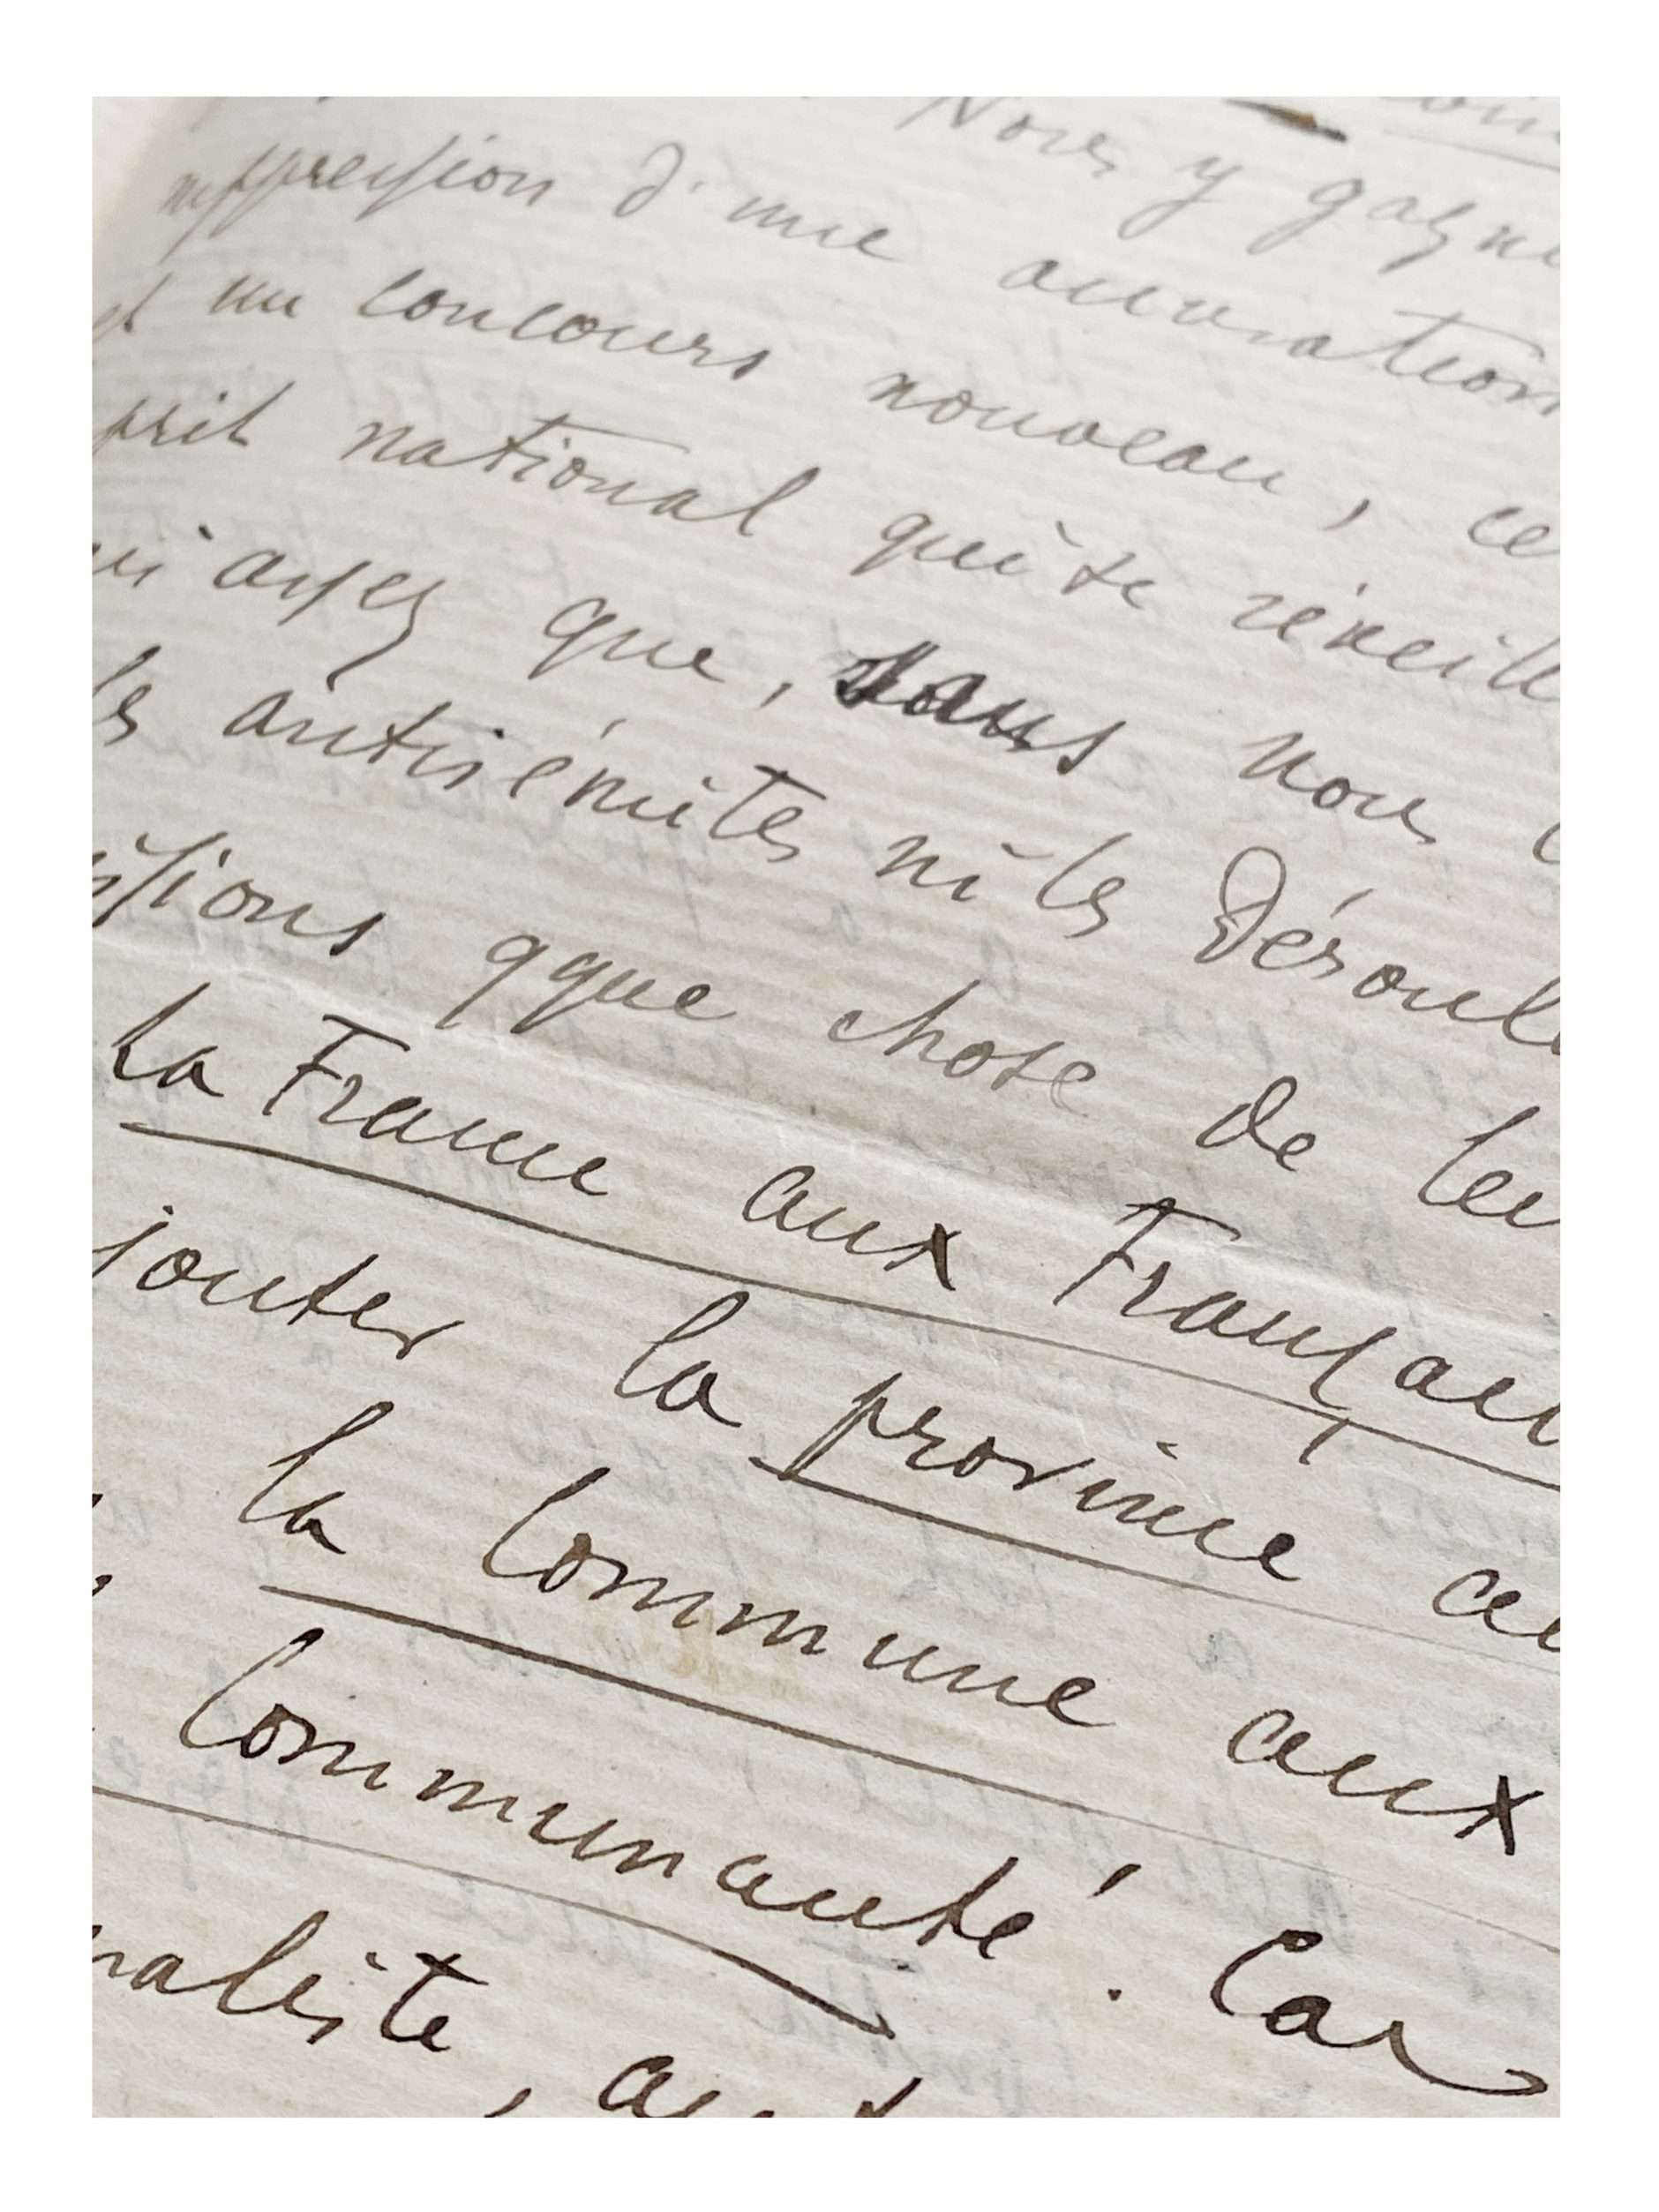 Nous y gagne
d'une
et un concours nouveau, ce
prit national qui se réveille
ui assez que, sans nous
les antisémites ni les Déroulè
issions qque chose de leu
La France aux Françai
jouter la province au
la Commune aux
Communauté. Car
naliste,